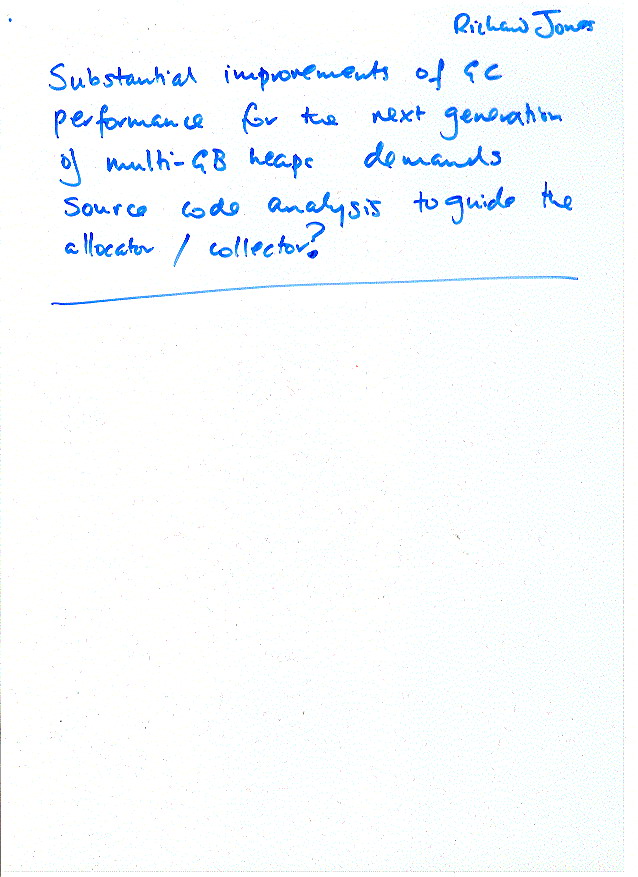 Richard Jones
Substantial improvements of GC
performance for the next generation
of multi-GB heaps demands
source code analysis to guide the
allocator / collector?